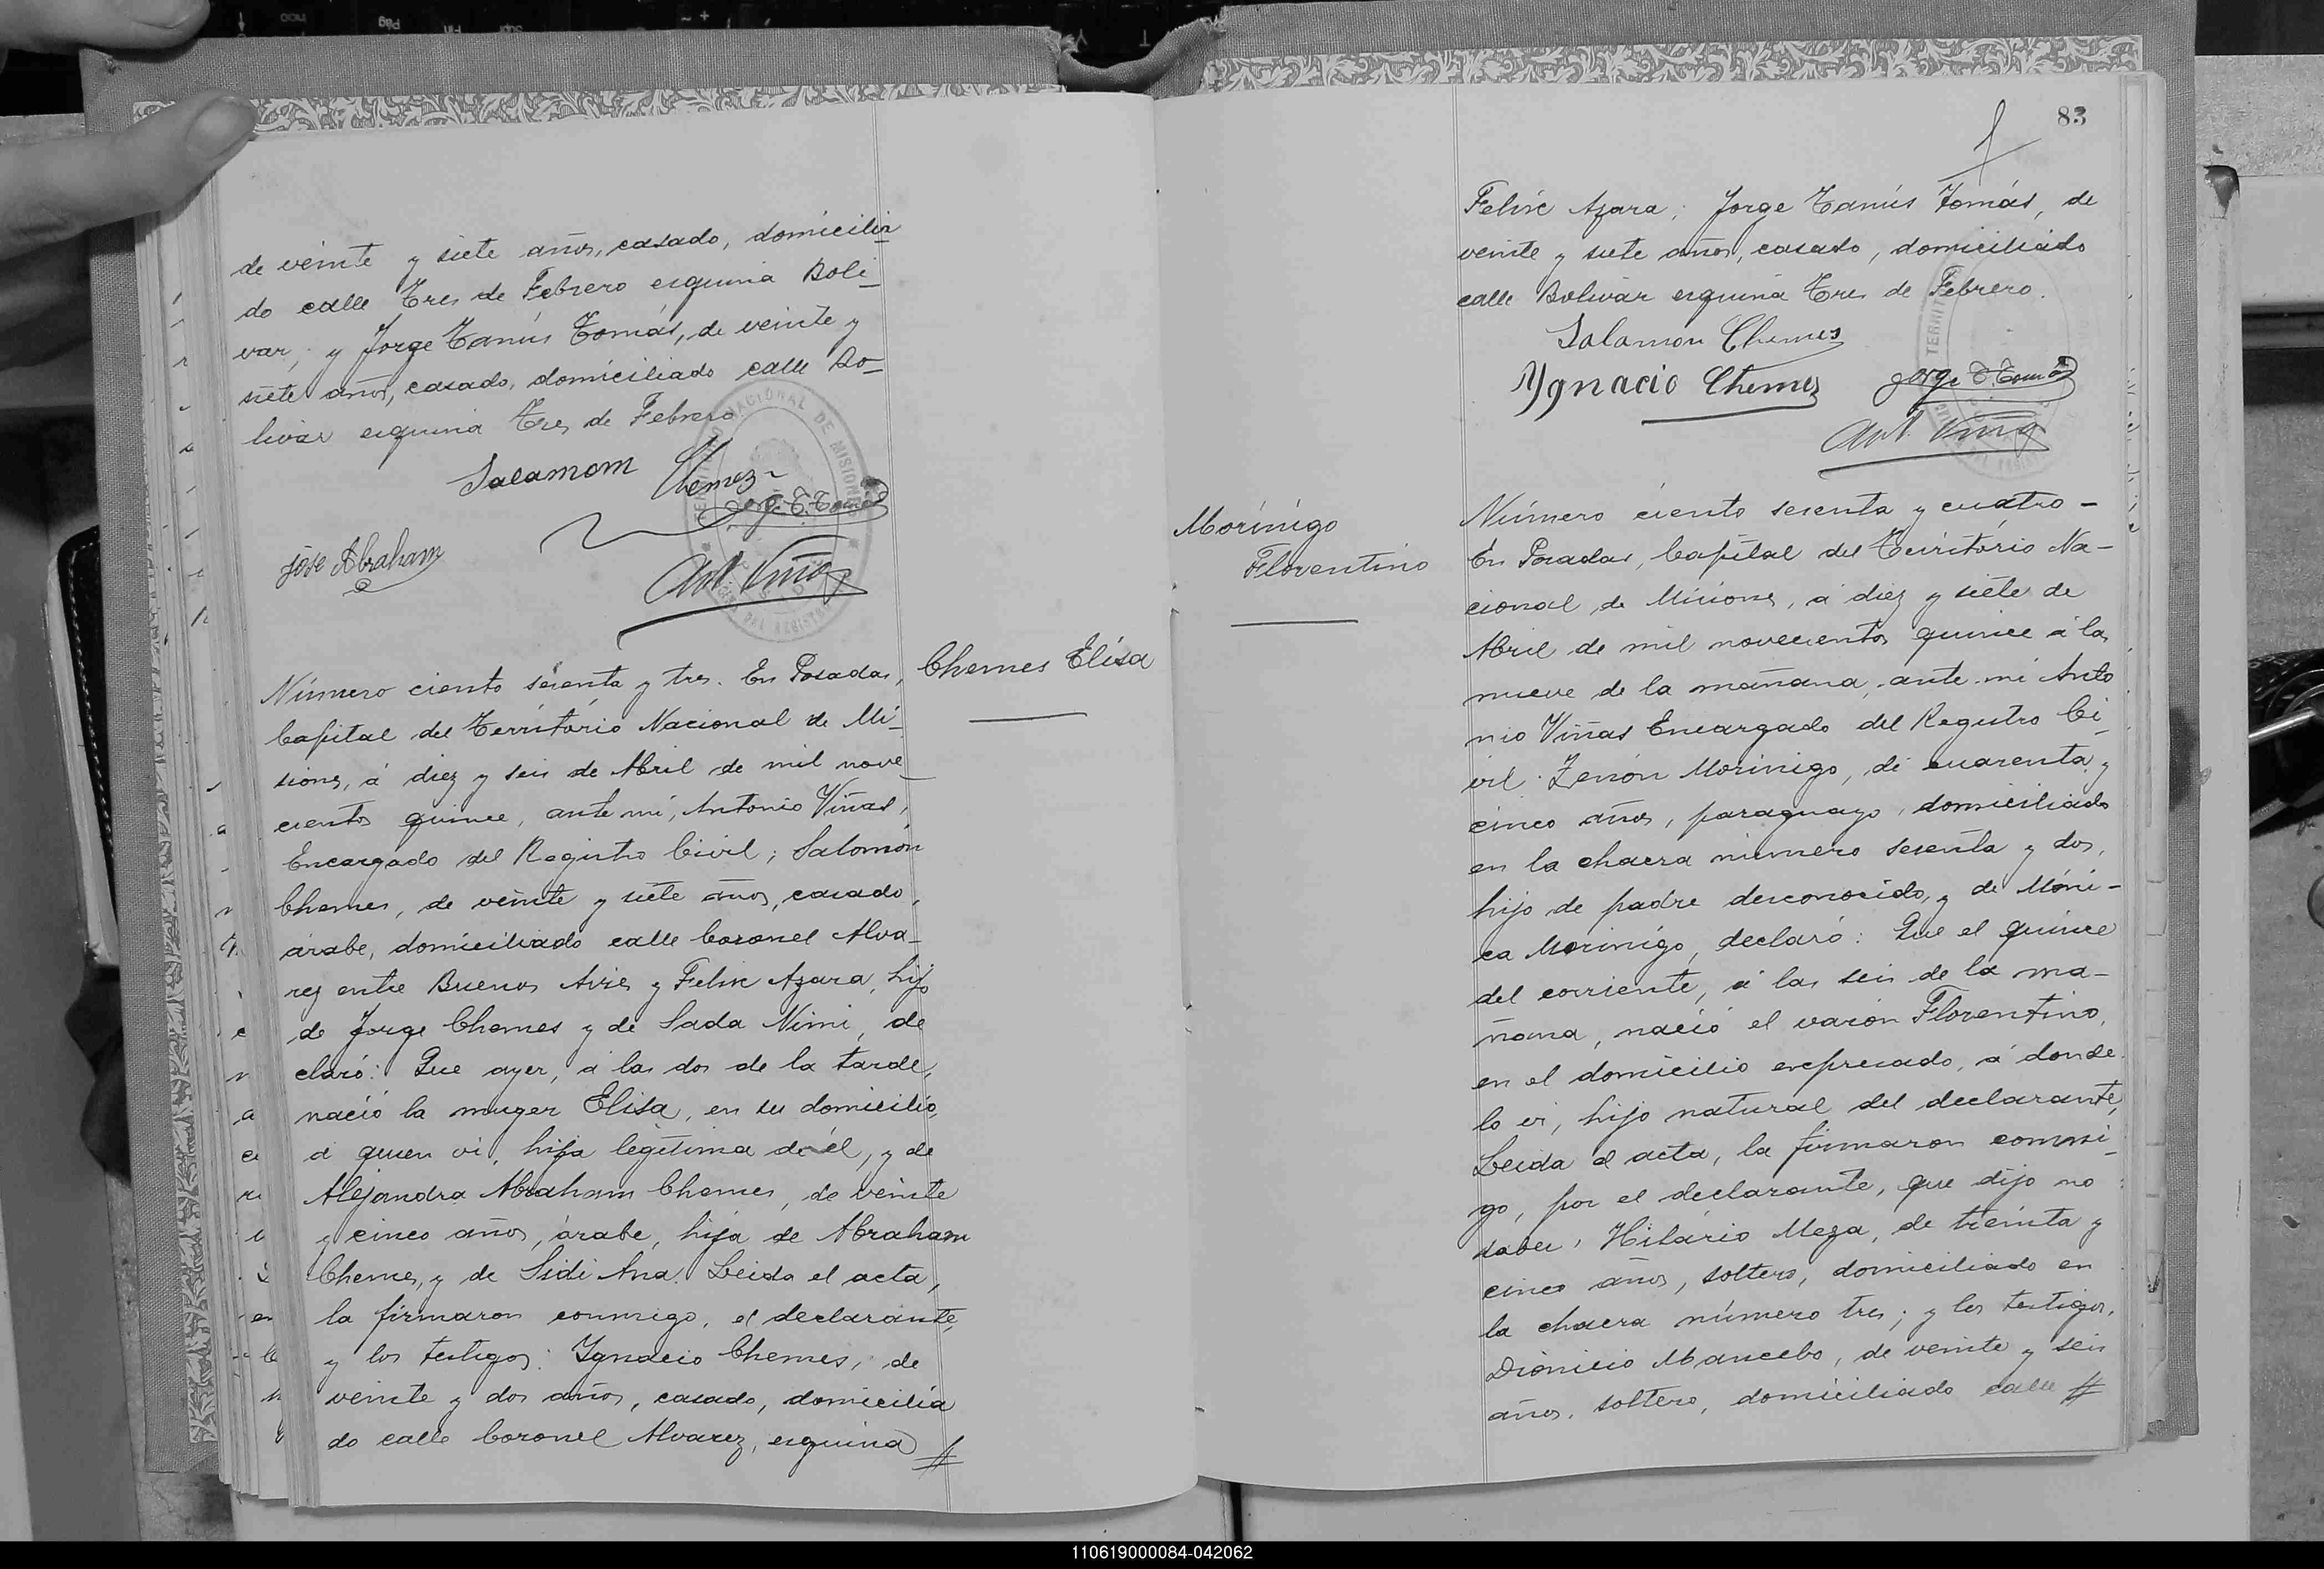 de veinte y siete años, casado, domicilia
do calle Tres de Febrero esquina Boli_
var; y Jorge Tanús Tomás, de veinte y
siete años, casado, domiciliado calle Bo_
livar esquina Tres de Febrero.
Salamom Chemez
Jorge T. Tomás
jose Abraham
Ant Viñas
Número ciento sesenta y tres. En Posadas,
Capital del Território Nacional de Mi_
siones, á diez y seis de Abril de mil nove_
cientos quince, ante mi, Antonio Viñas,
Encargado del Registro Civil; Salomón
Chemes, de veinte y siete años, casado,
árabe, domiciliado calle Coronel Alva_
rez entre Buenos Aires y Felix Azara, hijo
de Jorge Chemes y de Sada Nimi, de
claró: Que ayer, á las dos de la tarde,
nació la muger Elisa, en su domicilio,
á quien vi, hija legítima de él, y de
Alejandra Abraham Chemes, de veinte
y cinco años, árabe, hija de Abraham
Chemes, y de Sidi Ana. Leida el acta,
la firmaron conmigo, el declarante,
y los testigos: Ygnacio Chemes, de
veinte y dos años, casado, domicilia
do calle Coronel Alvarez, esquina #
Chemes Elisa
83
Felix Azara; Jorge Tanús Tomás, de
veinte y siete años, casado, domiciliado
calle Bolivar esquina Tres de Febrero.
Salamon Chemes
Ygnacio Chemes
Jorge T. Tomás
Ant. Viñas
Morínigo
Florentino
Número ciento sesenta y cuatro -
En Posadas, Capital del Território Na-
cional de Misiones, á diez y siete de
Abril de mil novecientos quince á las
nueve de la mañana, ante mi Anto
nio Viñas Encargado del Registro Ci_
vil. Zenón Morinigo, de cuarenta y
cinco años, paraguayo, domiciliado
en la chacra número sesenta y dos,
hijo de padre desconocido, y de Móni-
ca Morinigo, declaró: Que el quince
del corriente, á las seis de la ma-
ñana, nació el varon Florentino,
en el domicilio expresado, á donde
lo vi, hijo natural del declarante,
Leida el acta, la firmaron conmi_
go, por el declarante, que dijo no
saber, Hilário Meza, de treinta y
cinco años, soltero, domiciliado en
la chacra número tres; y los testigos,
Dionicio Mancebo, de veinte y seis
años, soltero, domiciliado calle #
110619000084-042062